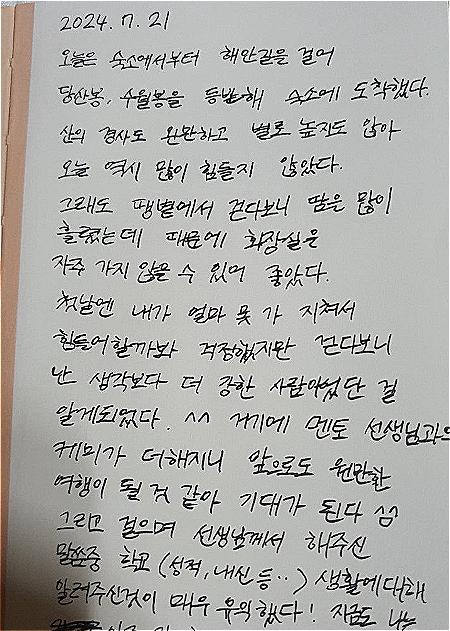 2024.7.21
오늘은 숙소에서부터 해안길을 걸어
당산봉, 수월봉을 등반해 숙소에 도착했다.
산의 경사도 완만하고 별로 높지도 않아
오늘 역시 많이 힘들지 않았다.
그래도 땡볕에서 걷다보니 땀은 많이
흘렸는데 때문에 화장실은
자주 가지 않을 수 있어 좋았다.
첫날엔 내가 얼마 못 가 지쳐서
힘들어할까봐 걱정했지만 걷다보니
난 생각보다 더 강한 사람이었단 걸
알게되었다. ^^ 거기에 멘토 선생님과의
케미가 더해지니 앞으로도 원만한
여행이 될 것 같아 기대가 된다
그리고 걸으며 선생님께서 해주신
말씀중 학교 (성적, 내신 등..) 생활에 대해
알려주신것이 매우 유익했다! 지금도 나는